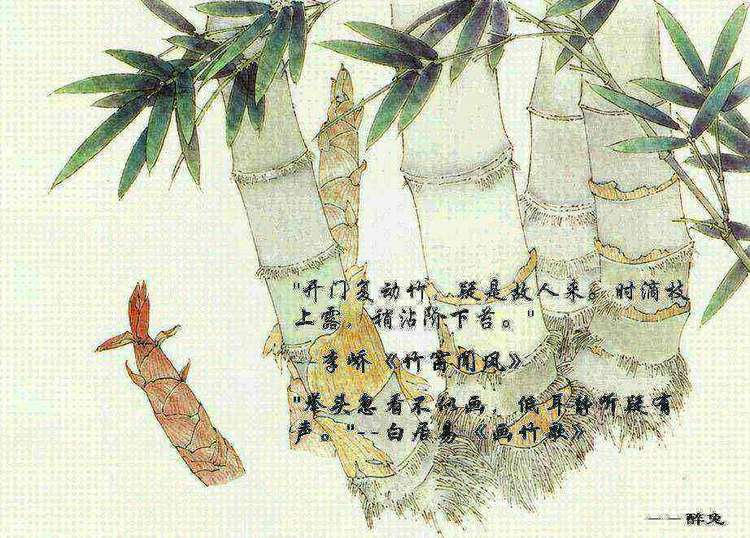 "开门复动竹，疑是故人来。时滴枝
上露，稍沾阶下苔。"
--李峤《竹窗闻风》
"举头忽看不似画，低耳静听疑有
声。"--白居易《画竹歌》
——醉兔